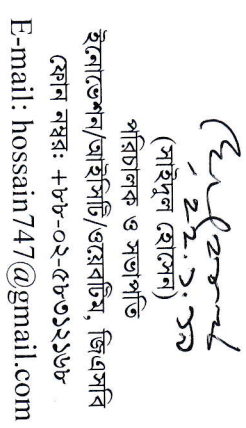 ২২.১.১৯
(সাইদুল হোসেন)
পরিচালক ও সভাপতি
ইনোভেশন/আইসিটি/ওয়েবটিম, জিএসবি
ফোন নম্বর: +৮৮-০২-৫৮৩১২১৬৮
E-mail: hossain747@gmail.com